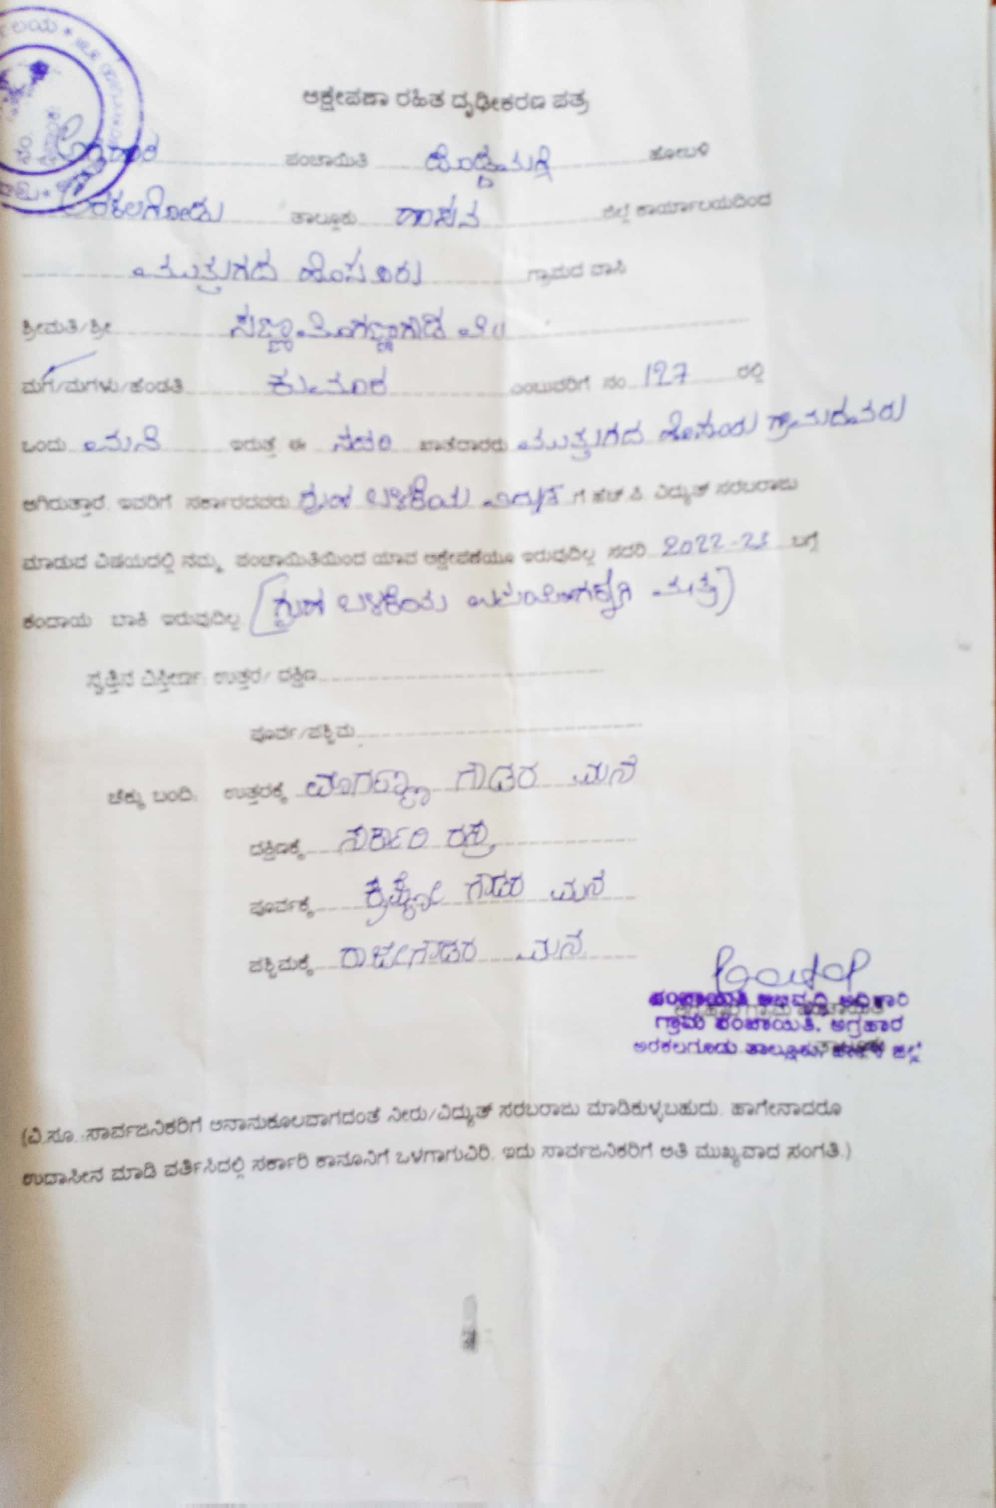 ಆಕ್ಷೇಪಣಾ ರಹಿತ ದೃಢೀಕರಣ ಪತ್ರ
ಅಗ್ರಹಾರ ಪಂಚಾಯಿತಿ ದೊಡ್ಡಮಗ್ಗೆ ಹೋಬಳಿ
ಅರಕಲಗೋಡು ತಾಲ್ಲೂಕು ಹಾಸನ ಜಿಲ್ಲೆ ಕಾರ್ಯಾಲಯದಿಂದ
ಮುತ್ತುಗದ ಹೊಸೂರು ಗ್ರಾಮದ ವಾಸಿ
ಶ್ರೀಮತಿ/ಶ್ರೀ
ಮಗ/ಮಗಳು/ಹೆಂಡತಿ ಕುಮಾರ ಎಂಬುವರಿಗೆ ನಂ 127 ರಲ್ಲಿ
ಒಂದು ಮನೆ ಇರುತ್ತೆ ಈ ಸದರಿ ಖಾತೆದಾರರು ಮುತ್ತುಗದ ಹೊಸೂರು ಗ್ರಾಮದವರು
ಆಗಿರುತ್ತಾರೆ. ಇವರಿಗೆ ಸರ್ಕಾರದವರು ಗೃಹ ಬಳಕೆಯ ವಿದ್ಯುತ್ ಗೆ ಹೆಚ್.ಪಿ. ವಿದ್ಯುತ್ ಸರಬರಾಜು
ಮಾಡುವ ವಿಷಯದಲ್ಲಿ ನಮ್ಮ ಪಂಚಾಯಿತಿಯಿಂದ ಯಾವ ಆಕ್ಷೇಪಣೆಯೂ ಇರುವುದಿಲ್ಲ ಸದರಿ 2022-23 ಬಗ್ಗೆ
ಕಂದಾಯ ಬಾಕಿ ಇರುವುದಿಲ್ಲ. [ಗೃಹ ಬಳಕೆಯ ಉಪಯೋಗಕ್ಕಾಗಿ ಮಾತ್ರ]
ಸ್ವತ್ತಿನ ವಿಸ್ತೀರ್ಣ: ಉತ್ತರ/ ದಕ್ಷಿಣ
ಪೂರ್ವ/ಪಶ್ಚಿಮ
ಚೆಕ್ಕು ಬಂದಿ: ಉತ್ತರಕ್ಕೆ ಗೌಡರ ಮನೆ
ದಕ್ಷಿಣಕ್ಕೆ ಸರ್ಕಾರಿ ರಸ್ತೆ
ಪೂರ್ವಕ್ಕೆ ಗೌಡರ ಮನೆ
ಪಶ್ಚಿಮಕ್ಕೆ ರಾಜೇಗೌಡರ ಮನೆ
ಪಂಚಾಯಿತಿ ಅಭಿವೃದ್ಧಿ ಅಧಿಕಾರಿ
ಗ್ರಾಮ ಪಂಚಾಯಿತಿ, ಅಗ್ರಹಾರ
ಅರಕಲಗೂಡು ತಾಲ್ಲೂಕು, ಹಾಸನ ಜಿಲ್ಲೆ
(ವಿ.ಸೂ. :ಸಾರ್ವಜನಿಕರಿಗೆ ಅನಾನುಕೂಲವಾಗದಂತೆ ನೀರು/ವಿದ್ಯುತ್ ಸರಬರಾಜು ಮಾಡಿಕುಳ್ಳಬಹುದು. ಹಾಗೇನಾದರೂ
ಉದಾಸೀನ ಮಾಡಿ ವರ್ತಿಸಿದಲ್ಲಿ ಸರ್ಕಾರಿ ಕಾನೂನಿಗೆ ಒಳಗಾಗುವಿರಿ. ಇದು ಸಾರ್ವಜನಿಕರಿಗೆ ಅತಿ ಮುಖ್ಯವಾದ ಸಂಗತಿ.)